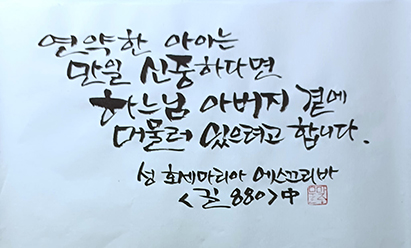 연약한 아이는
만일 신중하다면
하느님 아버지 곁에
머물러 있으려고 합니다.
성 호세마리아 에스끄리바
<길 880> 中